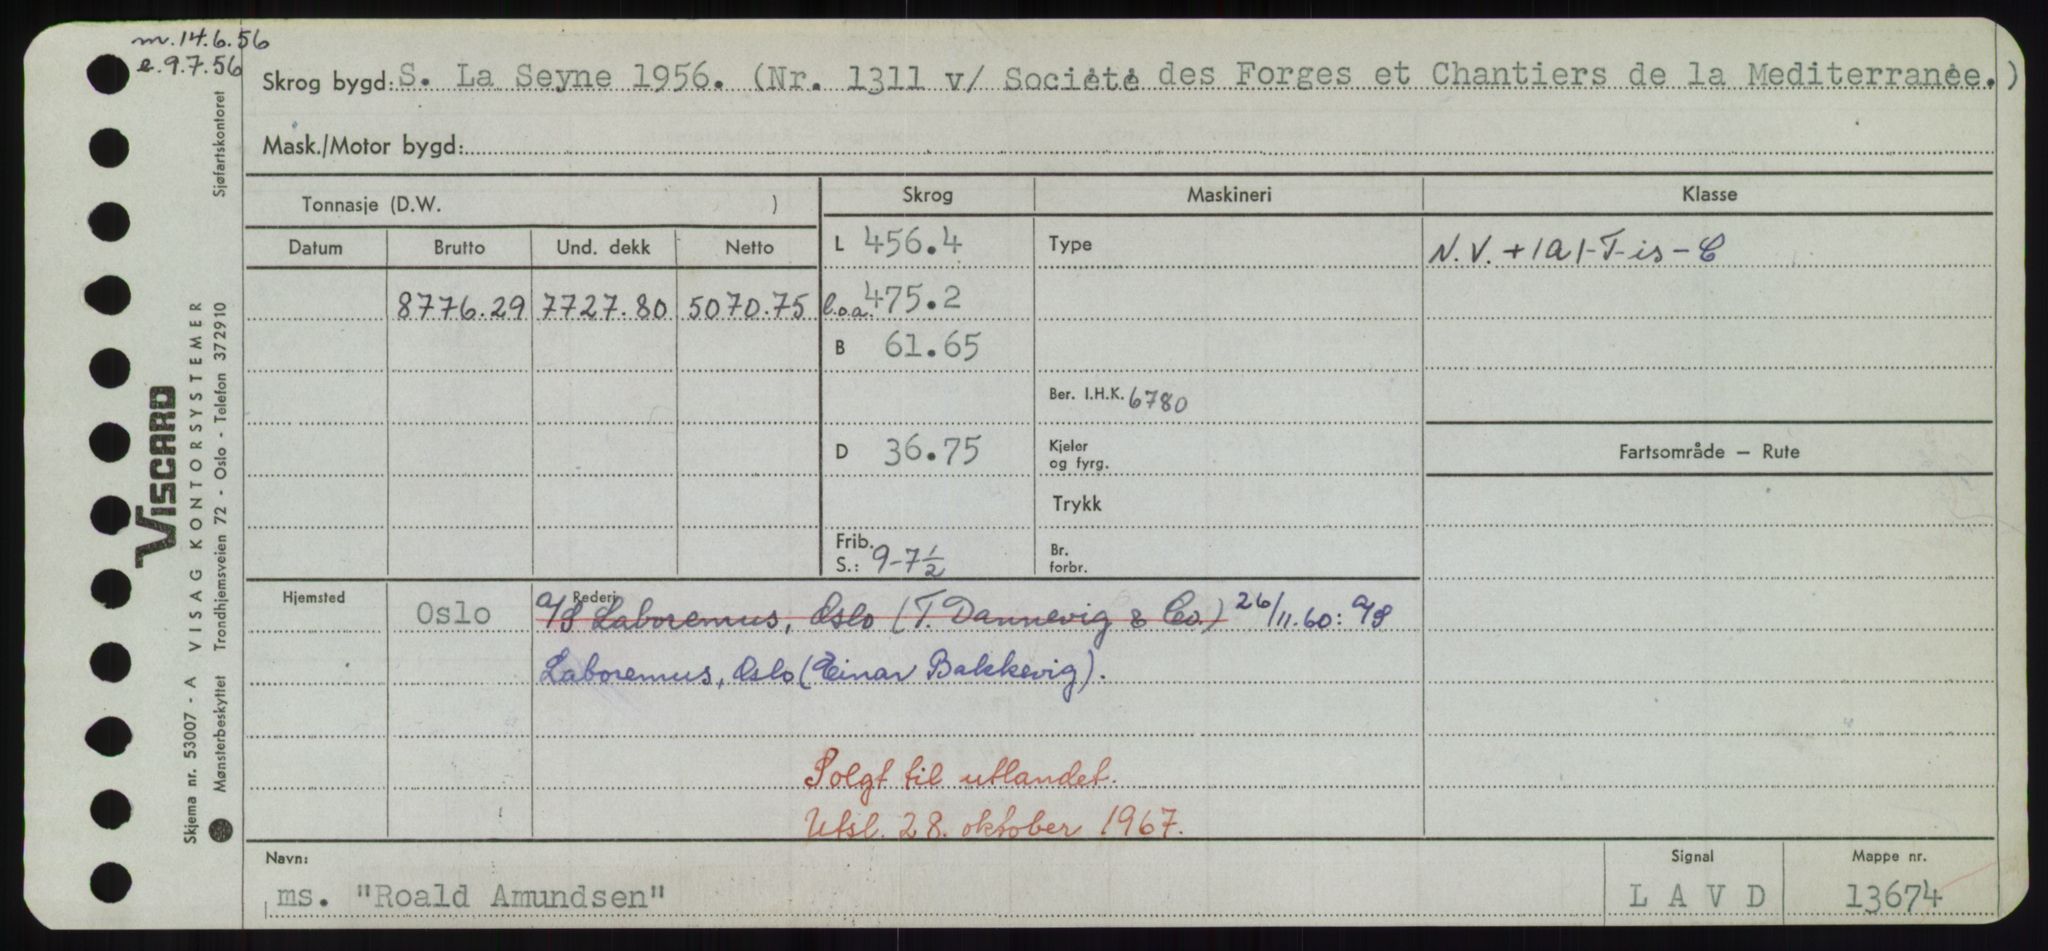 m. 14.6.56
e. 9.7.56
Skrog bygd: S. La Seyne 1956. (Nr. 1311 v/ Société des Forges et Chantiers de la Mediterranée.)
Mask./Motor bygd:
Tonnasje (D.W. )
Skrog Maskineri Klasse
Datum Brutto Und. dekk Netto
L 456.4 Type N.V. +1A1-T-is-C
8776.29 7727.80 5070.75 l.o.a. 475.2
B 61.65
Ber. I.H.K. 6780
D 36.75 Kjeler og fyrg.
Fartsområde — Rute
Trykk
Frib. S.: 9-7½ Br. forbr.
Hjemsted Oslo Rederi
A/S Laboremus, Oslo (T. Dannevig & Co.) 26/11.60: A/S
Laboremus, Oslo (Einar Bakkevig).
Solgt til utlandet.
Utsl. 28. oktober 1967.
Navn: Signal Mappe nr.
ms. "Roald Amundsen" L A V D 13674
VISCARD
Skjema nr. 53007 - A VISAG KONTORSYSTEMER
Mønsterbeskyttet Trondhjemsveien 72 - Oslo - Telefon 372910 Sjøfartskontoret